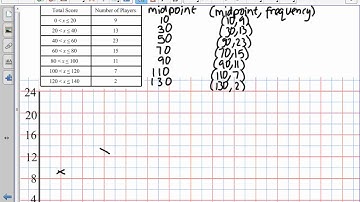 Total Score Number of Players midpoint (midpoint, frequency)
0 < x ≤ 20 9 10 (10,9)
20 < x ≤ 40 13 30 (30,13)
40 < x ≤ 60 23 50 (50,23)
60 < x ≤ 80 15 70 (70,15)
80 < x ≤ 100 11 90 (90,11)
100 < x ≤ 120 7 110 (110,7)
120 < x ≤ 140 2 130 (130,2)
24
20
16
12
8